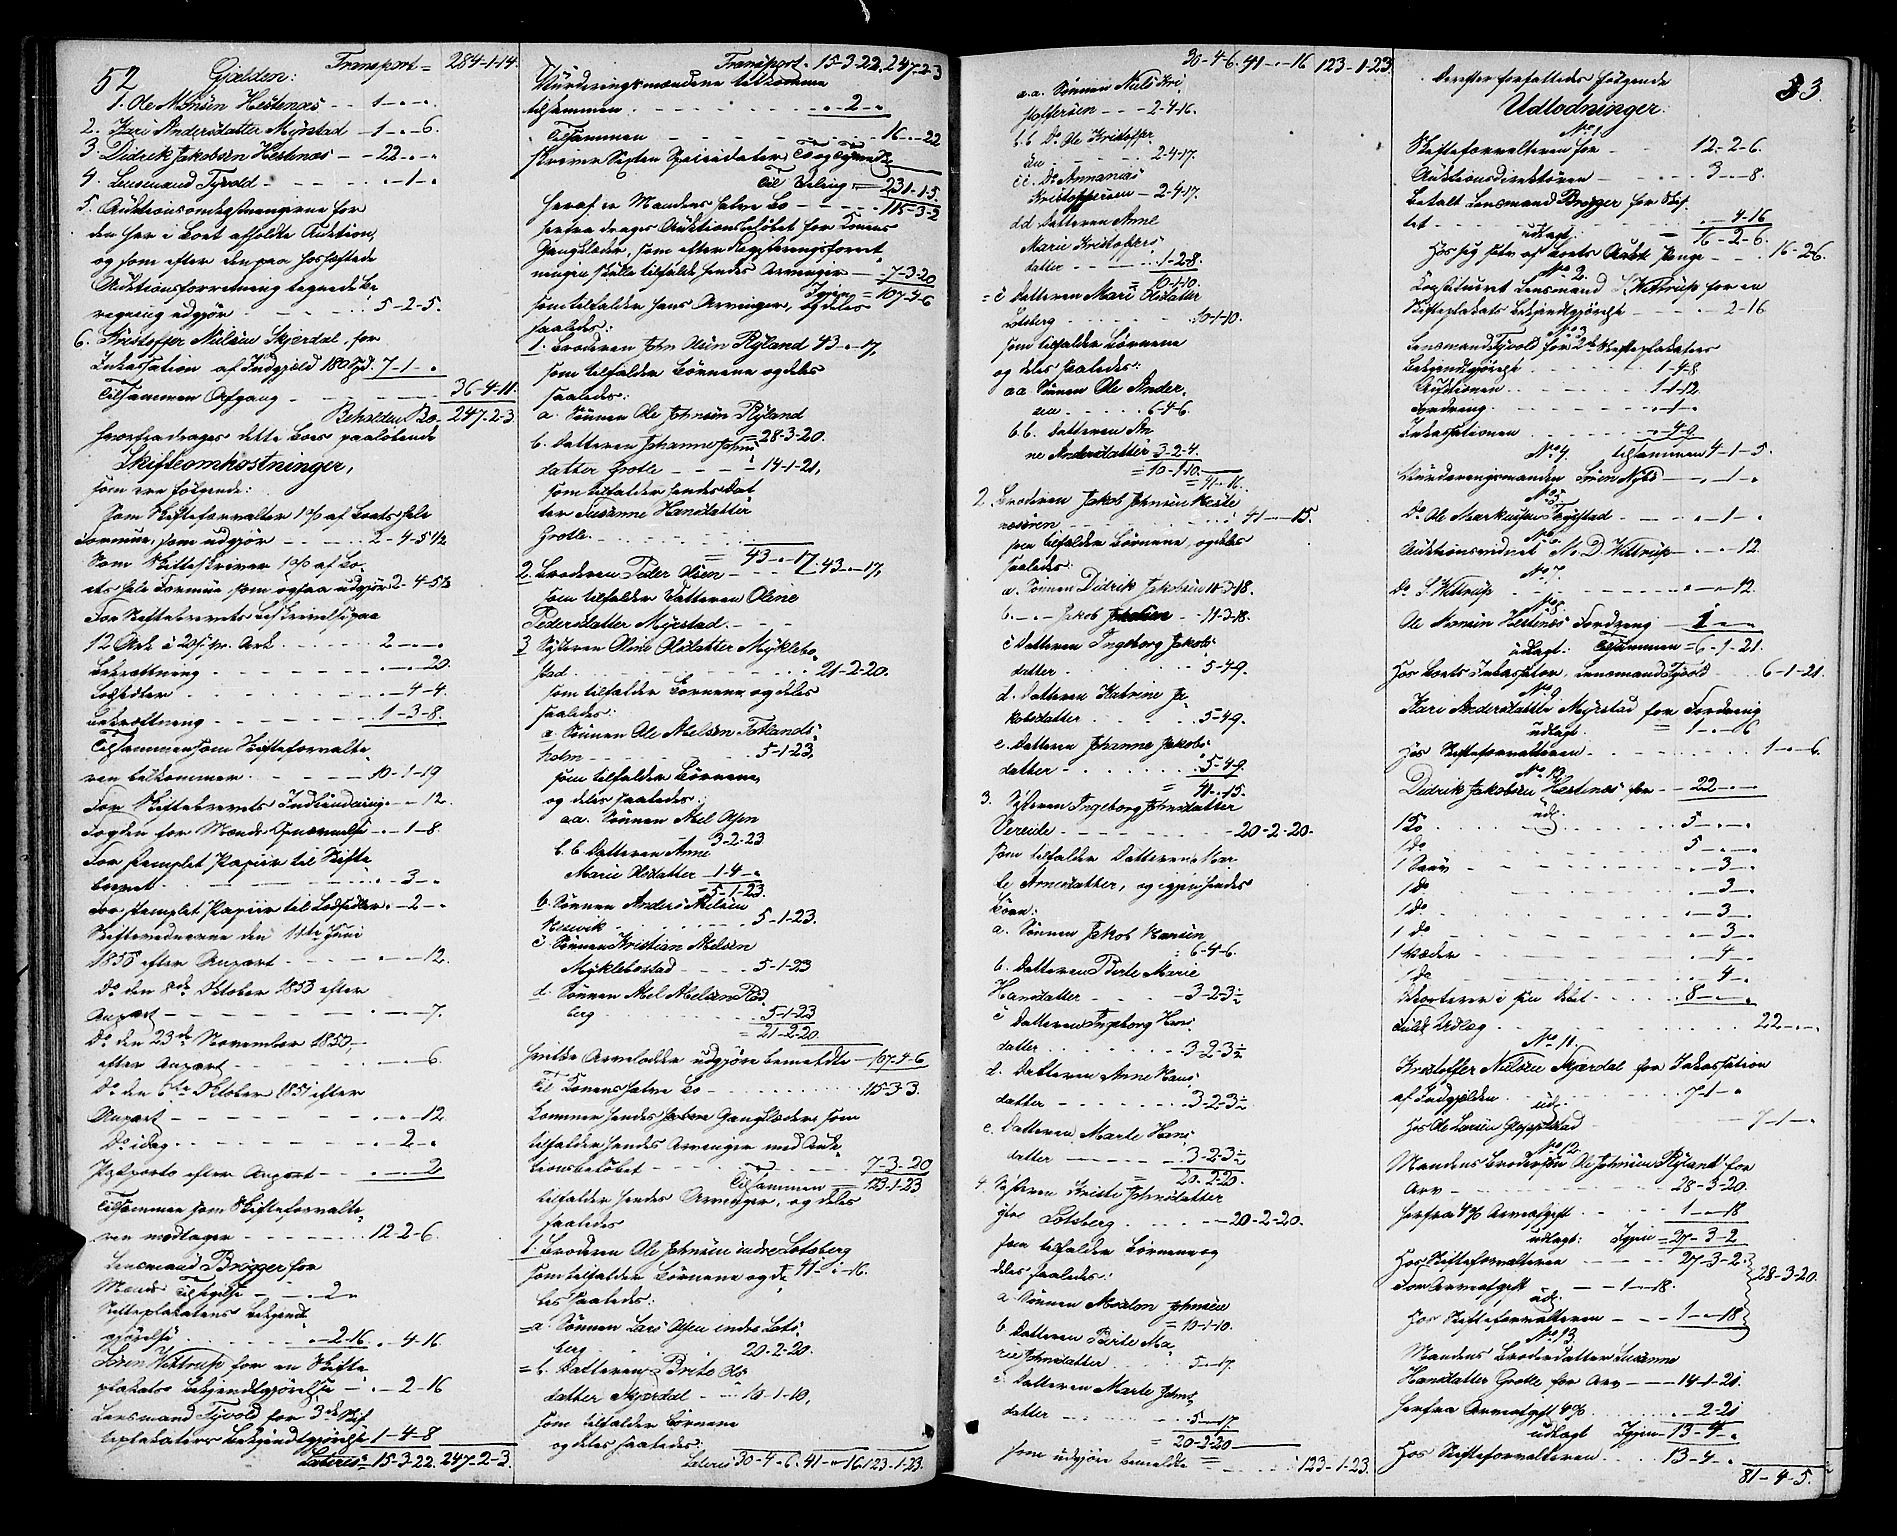 52
Gjælden: Transport = 284-1-14.
1. Ole Monsen Hestenæs - - 1 - " - "
2. Kari Andersdatter Myrstad - 1 - " - 6.
3. Didrik Jakobsen Hestenæs - - 22 - " - "
4. Lensmand Tyvold - - - " - 1 - "
5. Auktionsomkostningerne for
den her i Boet afholdte Auktion,
og som efter den paa hoshæftede
Auktionsforretning tegnede Be
regning udgjør - - - 5-2-5.
6. Kristoffer Nielsen Skjerdal, for
Inkassation af Indgjeld 180 Spd. 7-1-"
Tilsammen Afgang - - - 36-4-11.
Beholden Bo - 247-2-3
hvorfra drages dette Boes paaløbende
Skifteomkostninger,
som ere følgende:
Som Skifteforvalter 1 % af Boets hele
Formue, som udgjør - - - 2-4-5 1/2
Som Skifteskriver 1 % af Bo-
ets hele Formue som ogsaa udgjør 2-4-5 1/2
For Skiftebrevets Beskrivelse paa
12 Ark à 20 s. pr. Ark - - - 2 - " - "
Bekræftning - - - " - " - 20.
Lodsedler - - - " - 4-4.
Bekræftning - - - 1-3-8.
Tilsammen som Skifteforvalte-
ren tilkommer - - - 10-1-19
For Skiftebrevets Indsendning " - " - 12.
Fogden for Mænds Opnævnelse - " - 1-8.
For stemplet Papiir til Skifte
brevet - - - " - 3 - "
For stemplet Papiir til Lodsedler " - 2 - "
Skiftevidnerne den 11te Juni
1853 efter Anpart - - - " - " - 12.
Do den 8de Oktober 1853 efter
Anpart - - - " - " - 7.
Do den 23de November 1853,
efter Anpart - - - " - " - 6.
Do den 6te Oktober 1851 efter
Anpart - - - " - " - 12
Do idag - - - " - 2 - "
Postporto efter Anpart - - - " - " - 2
Tilsammen som Skifteforvalte-
ren modtager - - - 12-2-6.
Lensmand Brøgger for
Mænds Tilsigelse - - " - 2 "
Skifteplakatens Bekjendt-
gjørelse - - - " - 2-16 " - 4-16
Søren Wittrup for en Skifte
plakats Bekjendtgjørelse - " - 2-16
Lensmand Tyvold for 3de Skif
teplakaters Bekjendtgjørelse 1-4-8
Lateris = 15-3-22. 247-2-3.
Transport - 15-3-22. 247-2-3
Vurderingsmændene tilkomme
tilsammen - - - " - 2 - "
Tilsammen - - - 16 - " - 22
Til Deling = 231-1-5.
Heraf er Mandens halve Bo - - - 115-3-2
herfra drages Auktionsbeløbet for Konens
Gangklæder, som efter Registreringsforret
ningen skulle tilfalde hendes Arvinger - - 7-3-20
Igjen = 107-4-6
som tilfalder hans Arvinger, og deles
saaledes:
1. Broderen John Olsen Ryland 43-"-17,
som tilfalder Børnene og deles
saaledes:
a. Sønnen Ole Johnsen Ryland
= 28-3-20.
b. Datteren Johanne Johns
datter Grotle - - - 14-1-21,
som tilfalder hendes Dat
ter Susanne Hansdatter
Grotle.
= 43-"-17
2. Broderen Peder Olsen - - - 43-"-17,
som tilfalder Datteren Oline
Pedersdatter Myrstad. - - -
3 Søsteren Oline Olsdatter Myklebo-
stad - - - 21-2-20.
som tilfalder Børnene og deles
saaledes:
a Sønnen Ole Abelsen Totlands-
holm - - - 5-1-23,
som tilfalder Børnene,
og deles saaledes:
aa. Sønnen Abel Olsen
3-2-23
b.b. Datteren Anne
Marie Olsdatter 1-4-"
= 5-1-23.
b. Sønnen Anders Abelsen
Risevik - - - 5-1-23.
c. Sønnen Kristian Abelsen
Myklebostad - - - 5-1-23
d. Sønnen Abel Abelsen Rød
berg - - - 5-1-23
= 21-2-20.
hvilke Arvelodder udgjøre bemeldte - 107-4-6
Til Konens halve Bo - - - 115-3-3.
kommer hendes Gangklæder som
tilfalder hendes Arvinger med Auk-
tionsbeløbet - - - 7-3-20
Tilsammen = 123-1-23
tilfalder hendes Arvinger, og deles
saaledes
1. Broderen Ole Johnsen indre Lotsberg
41-"-16.
som tilfalder Børnene og de
les saaledes:
= a. Sønnen Lars Olsen indre Lots-
berg - - - 20-2-20.
= b. Datteren Brite Ols
datter Skjerdal - - 10-1-10,
som tilfalder Børnene
og deles saaledes:
Lateris 30-4-6. 41-"-16. 123-1-23.
30-4-6. 41-"-16 123-1-23.
a.a. Sønnen Niels Kri-
stoffersen - - 2-4-16.
b.b Do Ole Kristoffer
sen - - - 2-4-17.
cc. Do Annanias
Kristoffersen - 2-4-17.
d.d Datteren Anne
Marie Kristoffers
datter - - - 1-2-8.
= 10-1-10.
= c Datteren Mari Olsdatter
Lotsberg - - - 10-1-10.
som tilfalder Børnene
og deles saaledes:
aa Sønnen Ole Ander-
sen - - - 6-4-6.
b.b. Datteren An
ne Andersdatter 3-2-4.
= 10-1-10.
= 41-"-16.
2. Broderen Jakob Johnsen Heste
næsøren - - - 41-"-15.
som tilfalder Børnene, og deles
saaledes:
a. Sønnen Didrik Jakobsen 11-3-18.
b. - " - Jakob Jakobsen - 11-3-18.
c Datteren Ingeborg Jakobs-
datter - - - 5-4-9.
d. Datteren Katrine Ja-
kobsdatter - - - 5-4-9.
e. Datteren Johanne Jakobs-
datter - - - 5-4-9.
= 41-"-15.
3. Søsteren Ingeborg Johnsdatter
Vereide - - - 20-2-20.
som tilfalder Datteren Mar-
te Arnesdatter, og igjen hendes
Børn:
a. Sønnen Jakob Hansen
6-4-6.
b. Datteren Berte Marie
Hansdatter - - - 3-2-3 1/2
c Datteren Ingeborg Hans-
datter - - - 3-2-3 1/2
d. Datteren Anne Hans-
datter - - - 3-2-3 1/2
e. Datteren Marte Hans-
datter - - - 3-2-3 1/2
= 20-2-20.
4. Søsteren Kristi Johnsdatter
ytre Lotsberg - - - 20-2-20.
som tilfalder Børnene og
deles saaledes:
a. Sønnen Morten Johnsen
= 10-1-10.
b. Datteren Berte Ma-
rie Johnsdatter - - - 5-"-17.
c. Datteren Marte Johns-
datter - - - 5-"-17.
= 20-2-20
som udgjøre bemeldte = - - - 123-1-23.
53.
Derefter forfattedes følgende
Udlodninger:
No 1.
Skifteforvalteren for - - - 12-2-6.
Auktionsdirektøren - - - 3-"-8.
Betalt Lensmand Brøgger for Skif-
tet - - - " - 4-16
udlagt: = 16-2-6.
Hos sig selv af Boets Penge - - - 16-2-6.
No 2.
Constitueret Lensmand S. Wittrup for en
Skifteplakats Bekjendtgjørelse - - - " - 2-16
No 3.
Lensmand Tyvold for 3de Skifteplakaters
Bekjendtgjørelse - - - 1-4-8
Auktionen - - - 1-1-12.
Fordring - - - " - 1 - "
Inkassationen - - - " - 4-9
No 4. tilsammen 4-1-5.
Vurderingsmanden Sivert Nybø - - " - 1 - "
No 5.
Do Ole Markussen Trystad - - - " - 1 - "
No 6.
Auktionsvidnet N. D. Wittrup - - - " - " - 12
No 7.
Do S. Wittrup - - - " - " - 12.
No 8.
Ole Monsen Hestenæs Fordring - 1 - " - "
udlagt: Tilsammen = 6-1-21.
Hos Boets Inkassator, Lensmand Tyvold - - 6-1-21.
No 9.
Kari Andersdatter Myrstad for Fordring
udlagt. = 1-"-6
Hos Skifteforvalteren - - - 1-"-6.
No 10.
Didrik Jakobsen Hestnes for - - 22 - " - "
udl.
1 Ko - - - 5 - " - "
1 Do - - - 5 - " - "
1 Sauv - - - " - 3 - "
1 do - - - " - 3 - "
1 do - - - " - 3 - "
1 do - - - " - 3 - "
1 Væder - - - " - 4 - "
1 do - - - " - 4 - "
Dekorterer i sin Debet - - - 8 - " - "
Fuldt Udlæg - - - 22 - " - "
No 11.
Kristoffer Nielsen Skjerdal for Inkassation
af Indgjelden - - - 7-1-"
ud.
Hos Ole Larsen Gloppestad - - - 7-1-"
No 12.
Mandens Brodersøn Ole Johnsen Ryland for
Arv - - - 28-3-20.
herfra 4 % Arveafgift - - - 1-"-18
udlagt: Igjen = 27-3-2
Hos Skifteforvalteren - - - 27-3-2.
For Arveafgift - - 1-"-18. 28-3-20.
udl.
Hos Skifteforvalteren - - - 1-"-18
No 13.
Mandens Broderdatter Susanne
Hansdatter Grotle for Arv - - - 14-1-21.
herfra Arveafgift 4 % - - - 2-21
udlagt Igjen = 13-4-"
Hos Skifteforvalteren - - - 13-4-"
81-4-5.